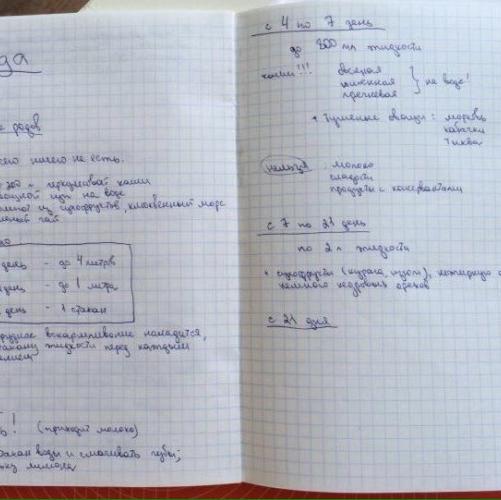 да
е родов
его ничего не есть.
200 г перетёртой каши
на воде
из сухофруктов, клюквенный морс
чай
но
день - до 4 литров
день - до 1 литра
день - 1 стакан
грудное вскармливание наладится,
стакану жидкости перед каждым
ь! (приходит молоко)
стакан воды и смачивать губы,
лимона
с 4 по 7 день
до 800 мл жидкости
каши!!! овсяная
пшенная
гречневая
не воде!
+ тушеные овощи: морковь
кабачки
тыква
нельзя: молоко
сладости
продукты с консервантами
с 7 по 21 день
по 2 л жидкости
+ сухофрукты (курага, изюм),
немного кедровых орехов
с 21 дня